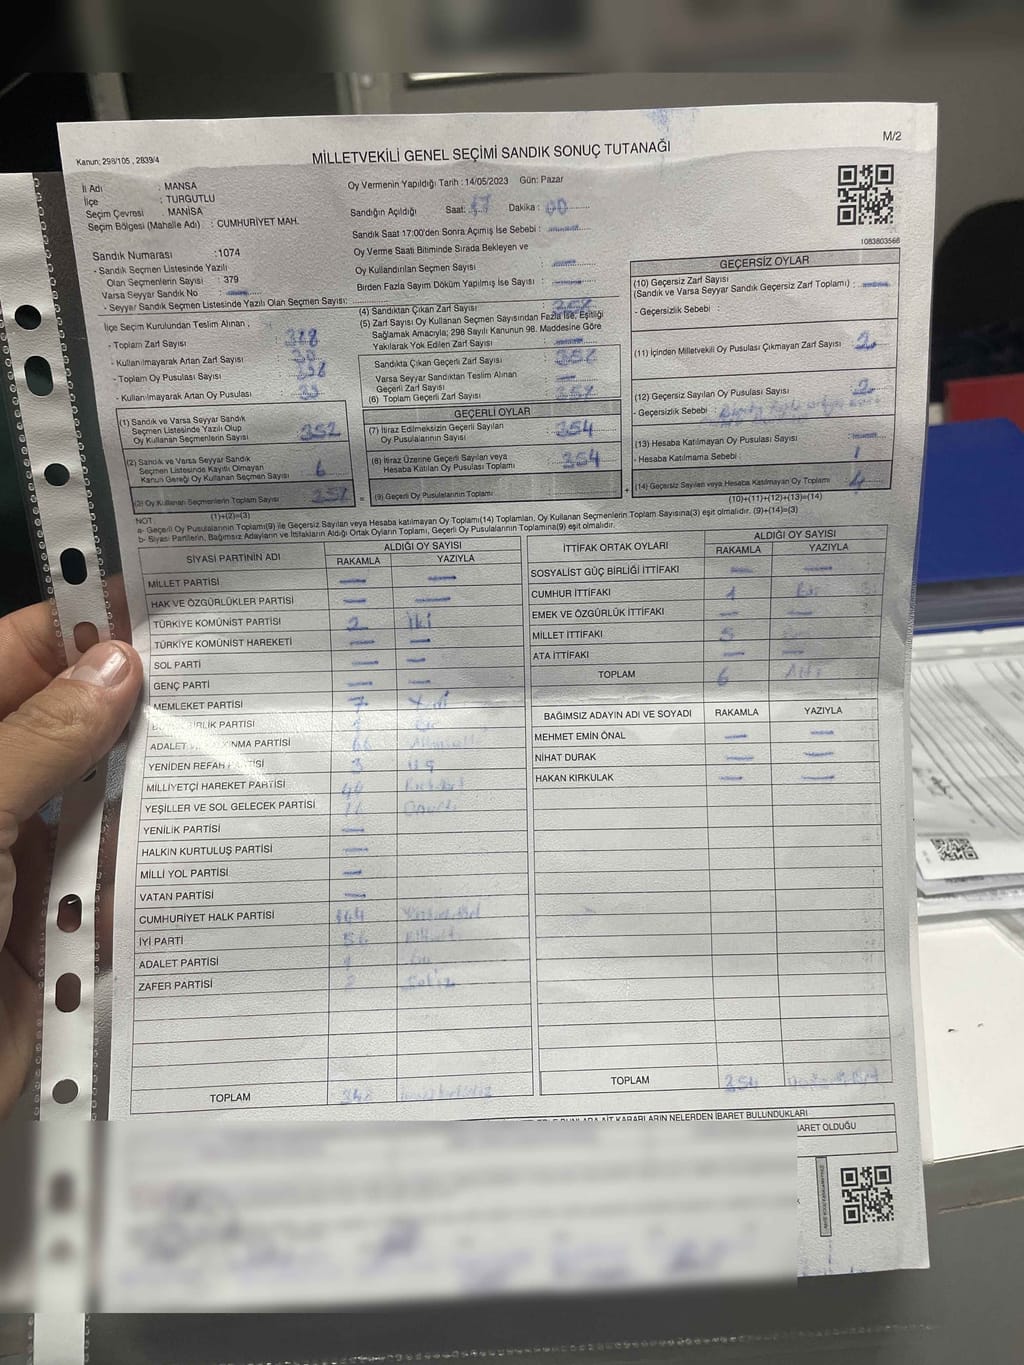 M/2
Kanun: 298/105 , 2839/4
MİLLETVEKİLİ GENEL SEÇİMİ SANDIK SONUÇ TUTANAĞI
İl Adı : MANSA
İlçe : TURGUTLU
Seçim Çevresi : MANİSA
Seçim Bölgesi (Mahalle Adı) : CUMHURİYET MAH.
Oy Vermenin Yapıldığı Tarih : 14/05/2023 Gün: Pazar
Sandığın Açıldığı Saat: Dakika : 00
Sandık Saat 17:00'den Sonra Açımış İse Sebebi :
Oy Verme Saati Bitiminde Sırada Bekleyen ve
Oy Kullandırılan Seçmen Sayısı :
Birden Fazla Sayım Döküm Yapılmış İse Sayısı :
1083803568
Sandık Numarası : 1074
- Sandık Seçmen Listesinde Yazılı
Olan Seçmenlerin Sayısı : 379
Varsa Seyyar Sandık No :
- Seyyar Sandık Seçmen Listesinde Yazılı Olan Seçmen Sayısı:
İlçe Seçim Kurulundan Teslim Alınan ;
- Toplam Zarf Sayısı :
- Kullanılmayarak Artan Zarf Sayısı :
- Toplam Oy Pusulası Sayısı :
- Kullanılmayarak Artan Oy Pusulası :
(1) Sandık ve Varsa Seyyar Sandık
Seçmen Listesinde Yazılı Olup
Oy Kullanan Seçmenlerin Sayısı : 352
(2) Sandık ve Varsa Seyyar Sandık
Seçmen Listesinde Kayıtlı Olmayan
Kanun Gereği Oy Kullanan Seçmen Sayısı : 6
(3) Oy Kullanan Seçmenlerin Toplam Sayısı 358
(1)+(2)=(3)
(4) Sandıktan Çıkan Zarf Sayısı : 358
(5) Zarf Sayısı Oy Kullanan Seçmen Sayısından Fazla İse, Eşitliği
Sağlamak Amacıyla; 298 Sayılı Kanunun 98. Maddesine Göre
Yakılarak Yok Edilen Zarf Sayısı :
Sandıkta Çıkan Geçerli Zarf Sayısı : 358
Varsa Seyyar Sandıktan Teslim Alınan
Geçerli Zarf Sayısı :
(6) Toplam Geçerli Zarf Sayısı : 358
GEÇERLİ OYLAR
(7) İtiraz Edilmeksizin Geçerli Sayılan
Oy Pusulalarının Sayısı : 354
(8) İtiraz Üzerine Geçerli Sayılan veya
Hesaba Katılan Oy Pusulası Toplamı : 354
(9) Geçerli Oy Pusulalarının Toplamı :
GEÇERSİZ OYLAR
(10) Geçersiz Zarf Sayısı
(Sandık ve Varsa Seyyar Sandık Geçersiz Zarf Toplamı) :
- Geçersizlik Sebebi :
(11) İçinden Milletvekili Oy Pusulası Çıkmayan Zarf Sayısı : 2
(12) Geçersiz Sayılan Oy Pusulası Sayısı : 2
- Geçersizlik Sebebi :
(13) Hesaba Katılmayan Oy Pusulası Sayısı :
- Hesaba Katılmama Sebebi :
(14) Geçersiz Sayılan veya Hesaba Katılmayan Oy Toplamı : 4
(10)+(11)+(12)+(13)=(14)
NOT :
a- Geçerli Oy Pusulalarının Toplamı(9) ile Geçersiz Sayılan veya Hesaba katılmayan Oy Toplamı(14) Toplamları, Oy Kullanan Seçmenlerin Toplam Sayısına(3) eşit olmalıdır. (9)+(14)=(3)
b- Siyasi Partilerin, Bağımsız Adayların ve İttifakların Aldığı Ortak Oyların Toplamı, Geçerli Oy Pusulalarının Toplamına(9) eşit olmalıdır.
SİYASİ PARTİNİN ADI
ALDIĞI OY SAYISI
RAKAMLA YAZIYLA
MİLLET PARTİSİ
HAK VE ÖZGÜRLÜKLER PARTİSİ
TÜRKİYE KOMÜNİST PARTİSİ 2 iki
TÜRKİYE KOMÜNİST HAREKETİ
SOL PARTİ
GENÇ PARTİ
MEMLEKET PARTİSİ 7 Yedi
BİRLİK PARTİSİ 1 Bir
ADALET KINMA PARTİSİ 66
YENİDEN REFAH PARTİSİ 3 üç
MİLLİYETÇİ HAREKET PARTİSİ
YEŞİLLER VE SOL GELECEK PARTİSİ
YENİLİK PARTİSİ
HALKIN KURTULUŞ PARTİSİ
MİLLİ YOL PARTİSİ
VATAN PARTİSİ
CUMHURİYET HALK PARTİSİ 144
İYİ PARTİ
ADALET PARTİSİ
ZAFER PARTİSİ Sekiz
TOPLAM 348
İTTİFAK ORTAK OYLARI
ALDIĞI OY SAYISI
RAKAMLA YAZIYLA
SOSYALİST GÜÇ BİRLİĞİ İTTİFAKI
CUMHUR İTTİFAKI 1 Bir
EMEK VE ÖZGÜRLÜK İTTİFAKI
MİLLET İTTİFAKI 5
ATA İTTİFAKI
TOPLAM 6 Altı
BAĞIMSIZ ADAYIN ADI VE SOYADI RAKAMLA YAZIYLA
MEHMET EMİN ÖNAL
NİHAT DURAK
HAKAN KIRKULAK
TOPLAM 354
KARARLARIN NELERDEN İBARET BULUNDUKLARI
BARET OLDUĞU